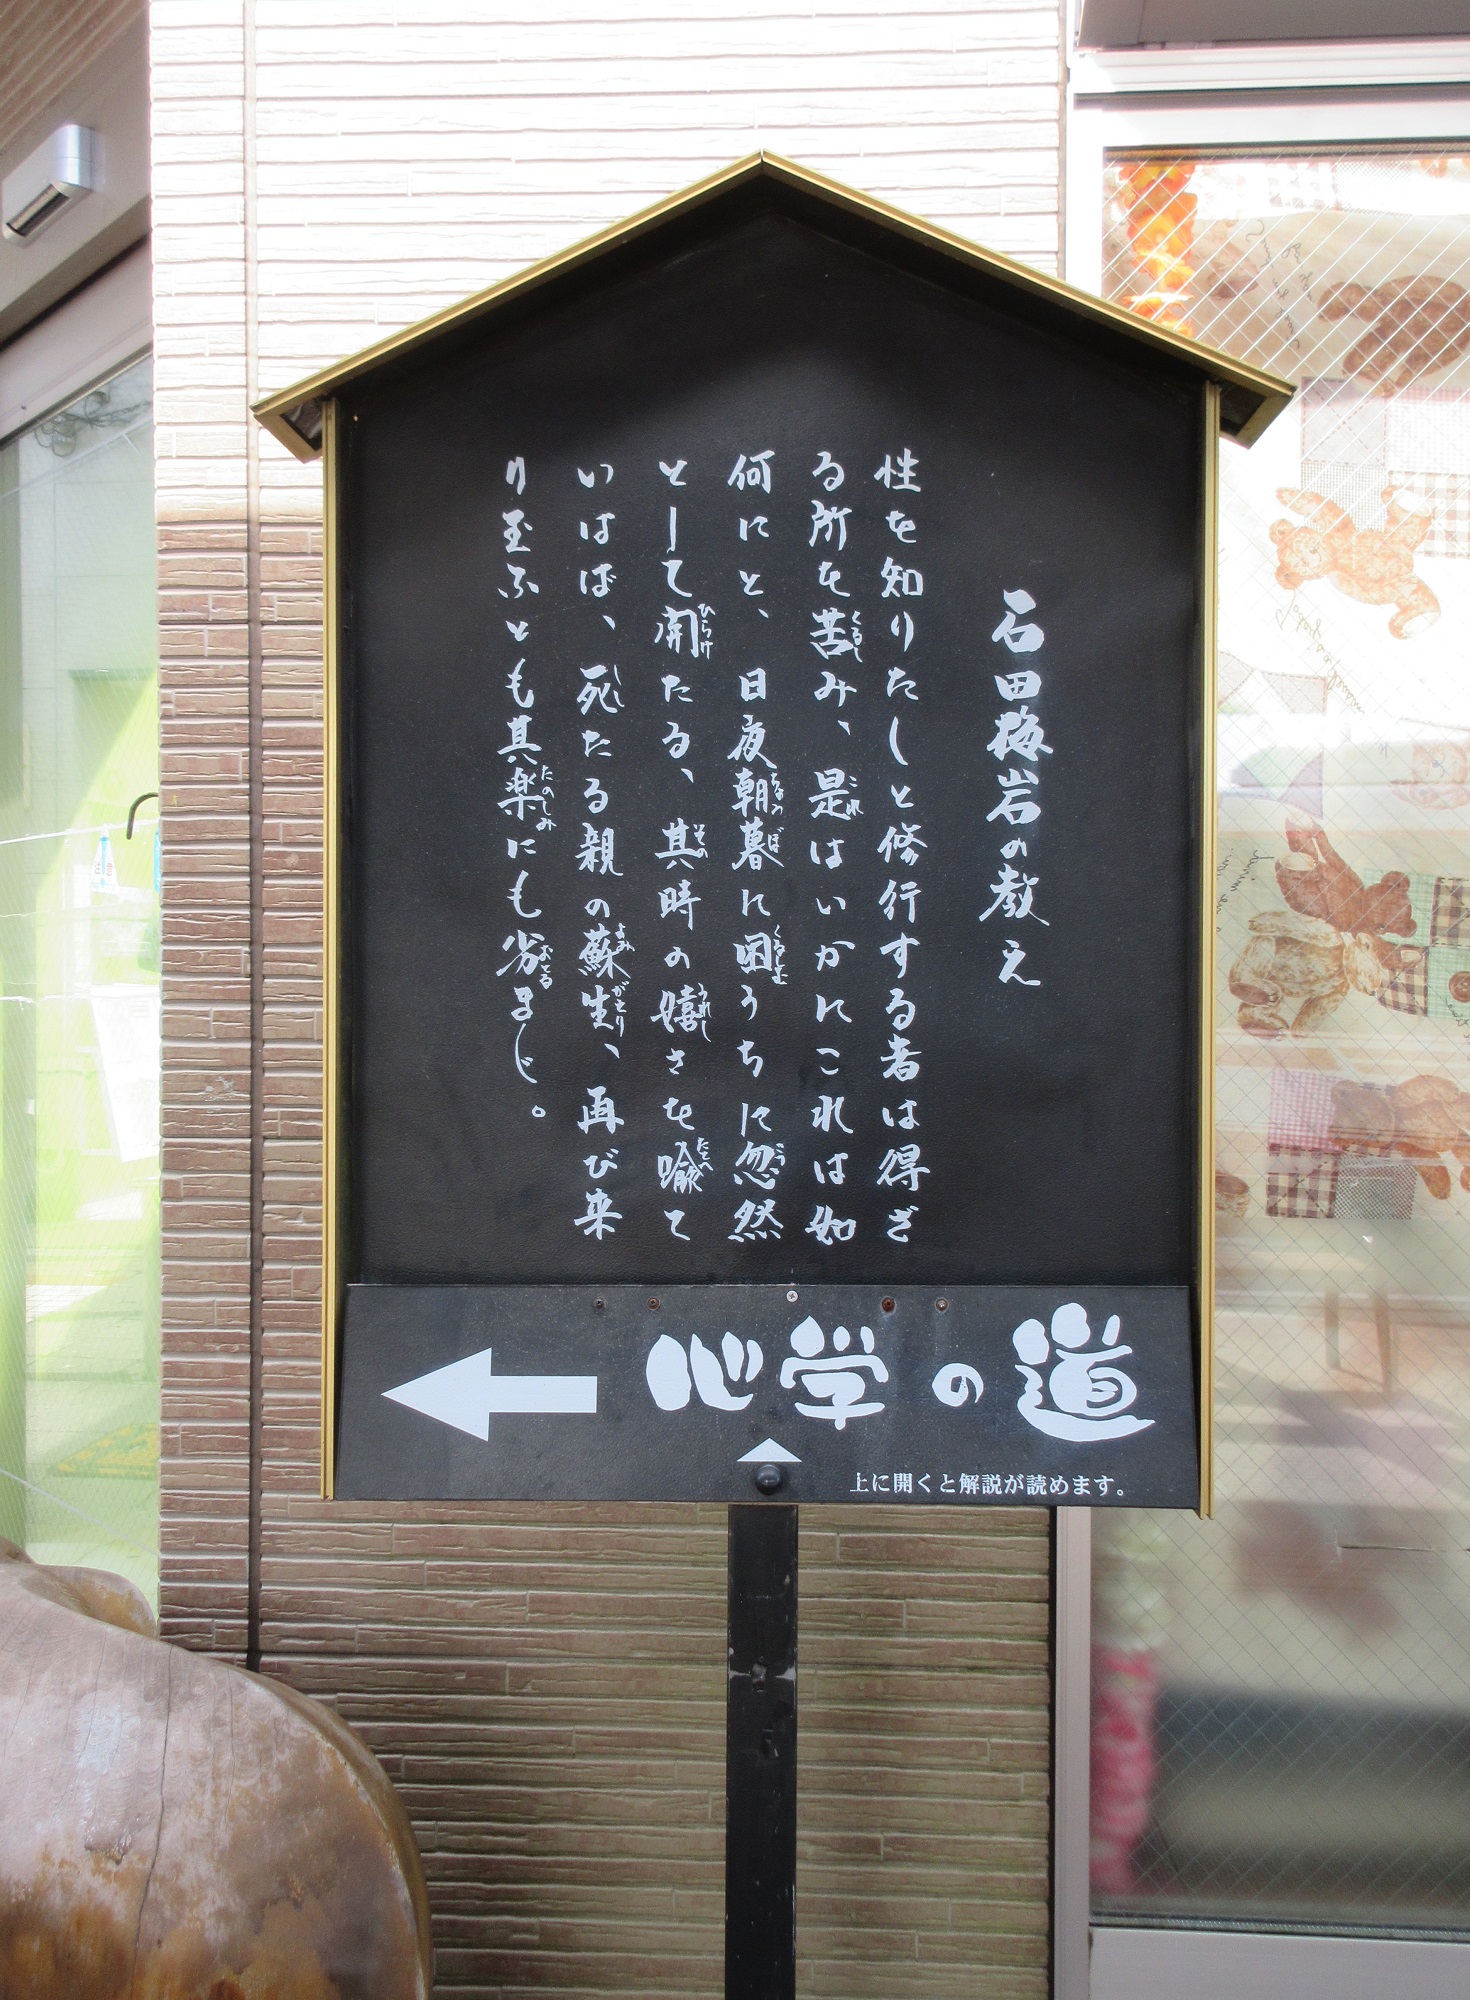 石田梅岩の教え
性を知りたしと修行する者は得ざ
る所を苦み、是はいかにこれは如
何にと、日夜朝暮に困うちに忽然
として開たる、其時の嬉さを喩て
いはば、死たる親の蘇生、再び来
り玉ふとも其楽にも劣まじ。
心学の道
上に開くと解説が読めます。